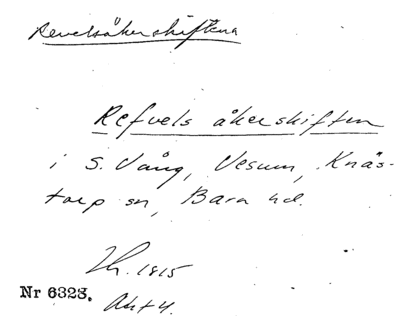 Revelsåkerskiftena
Refvels åkerskiften
i S. Vång, Vesum, Knäs-
torp sn, Bara hd.
Lh. 1815
Nr 6323.
Akt 4.